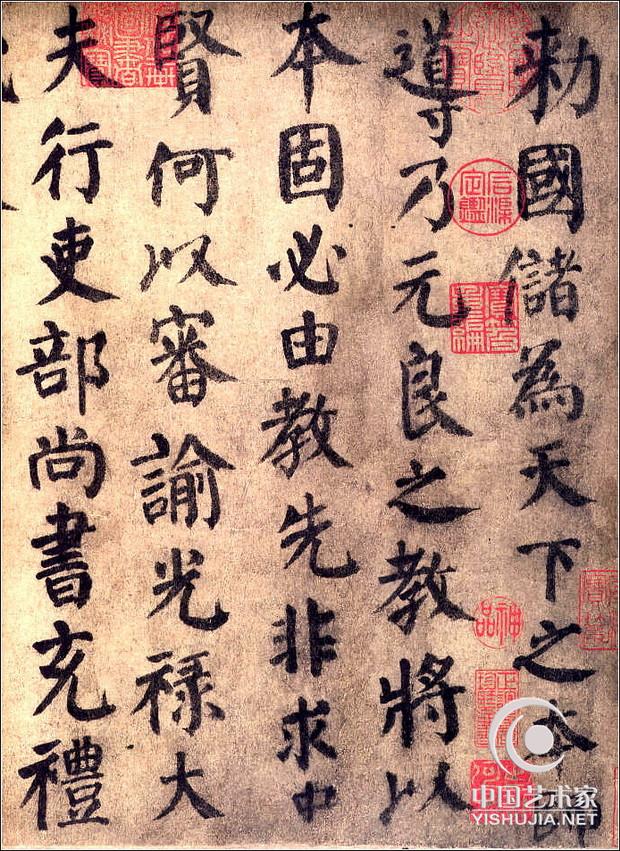 勑國儲為天下之本師
導乃元良之教將以
本固必由教先非求中
賢何以審諭光祿大
夫行吏部尚書充禮
石渠定鑑
寶笈重編
神品
中国艺术家
YISHUJIA.NET